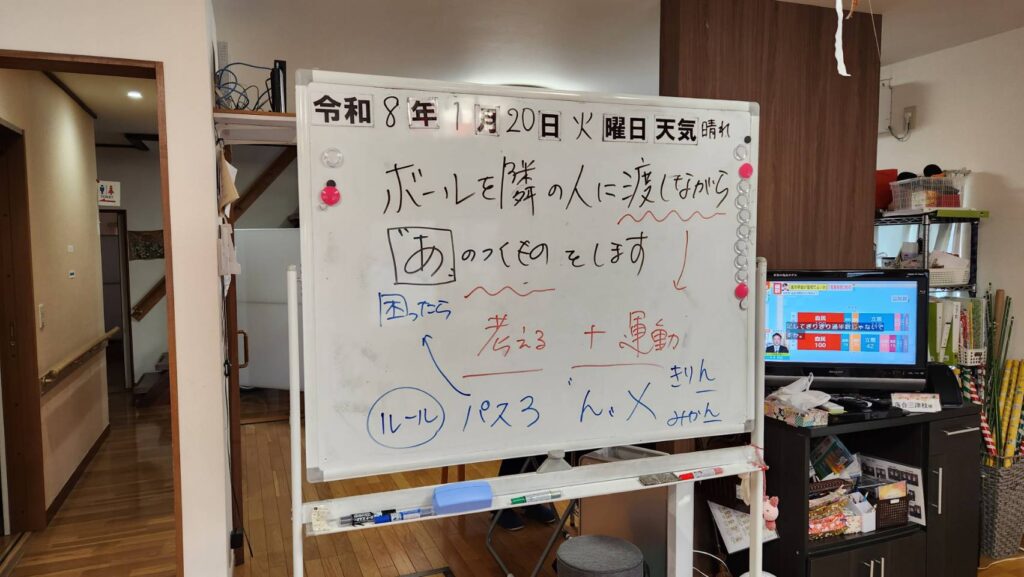 令和8年1月20日火曜日天気晴れ
ボールを隣の人に渡しながら
"あ"のつくものをします
困ったら
考える + 運動
ルール パス3 "ん"× きりん
みかん
TOILET
自民
立憲
自民
100
立憲
42